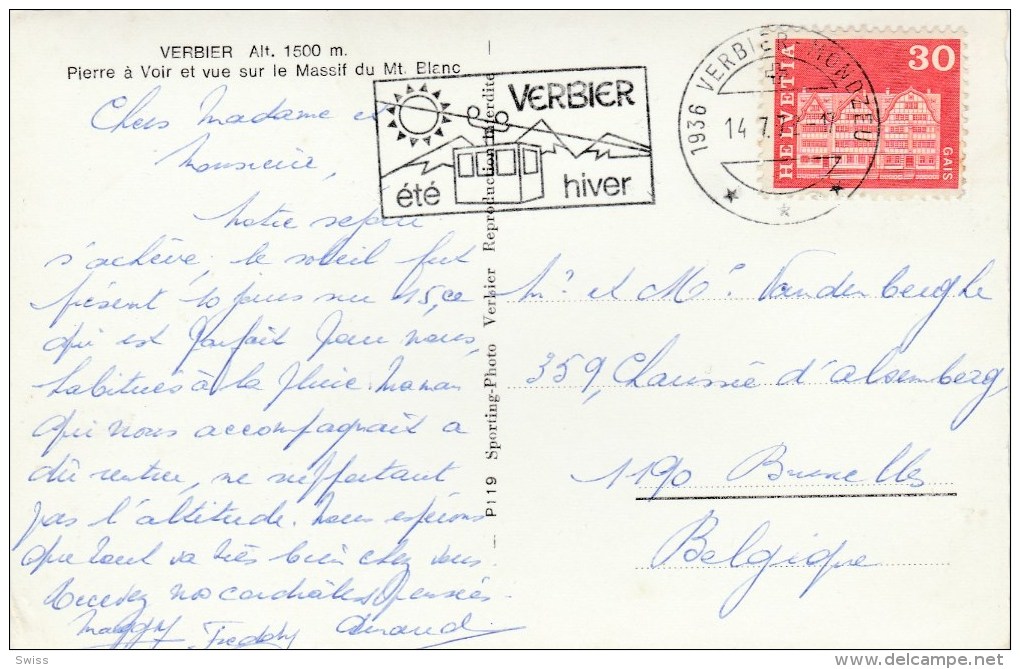 VERBIER Alt. 1500 m.
Pierre à Voir et vue sur le Massif du Mt. Blanc
Chers Madame et
Monsieur,
Notre séjour
s'achève, le soleil fut
présent 10 jours sur 15, ce
qui est parfait pour nous,
habitués à la pluie. Maman
qui nous accompagnait a
dû rentrer, ne supportant
pas l'altitude. Nous espérons
que tout va très bien chez vous.
Recevez nos cordiales pensées.
Maggy Freddy Arnaud
P119 Sporting-Photo Verbier Reproduction interdite
VERBIER
été hiver
1936 VERBIER-MONDZEU
14.7.7
HELVETIA
30
GAIS
Mr et Me Vandenberghe
359, Chaussée d'alsemberg,
1190 Bruxelles
Belgique
Swiss
www.delcampe.net